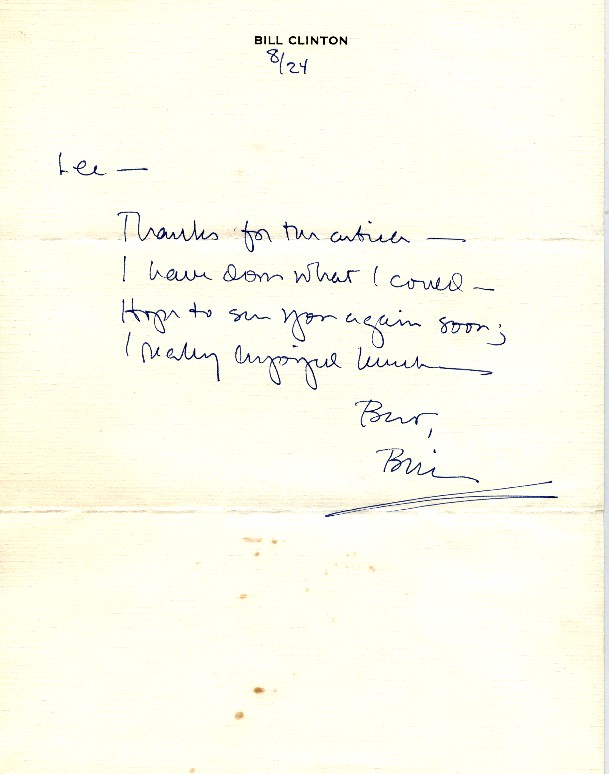 BILL CLINTON
8/24
Lee —
Thanks for the article —
I have done what I could —
Hope to see you again soon;
I really enjoyed lunch —
Best,
Bill